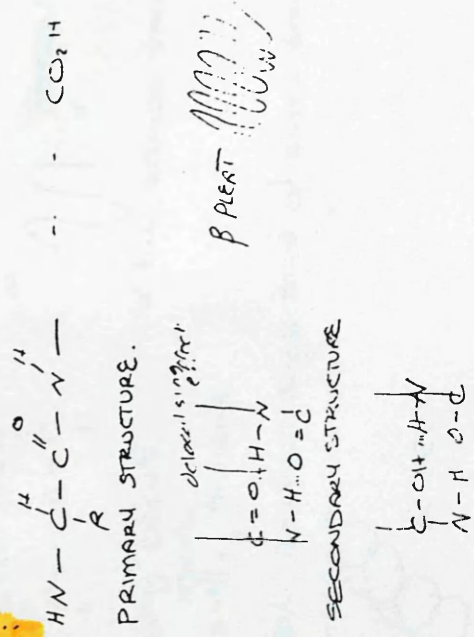 H O H
HN - C - C - N - - - - CO2H
R
PRIMARY STRUCTURE.
C = O..H - N
N - H...O = C
β PLEAT
SECONDARY STRUCTURE
C - OH...H - N
N - H O - C